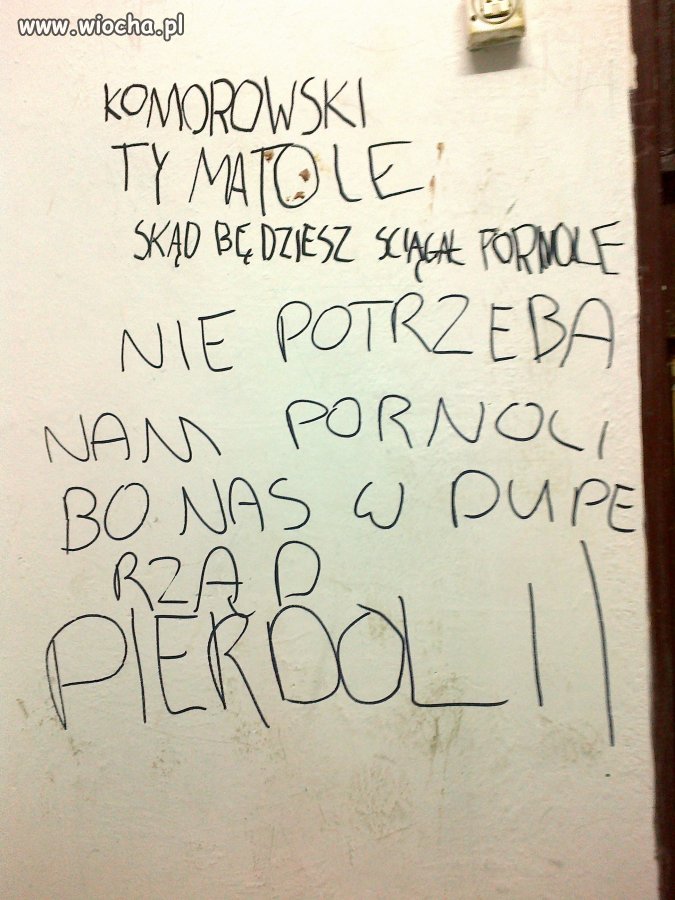 www.wiocha.pl
KOMOROWSKI
TY MATOLE
SKĄD BĘDZIESZ SCIĄGAŁ PORNOLE
NIE POTRZEBA
NAM PORNOLI
BO NAS W DUPE
RZĄD
PIERDOLI!